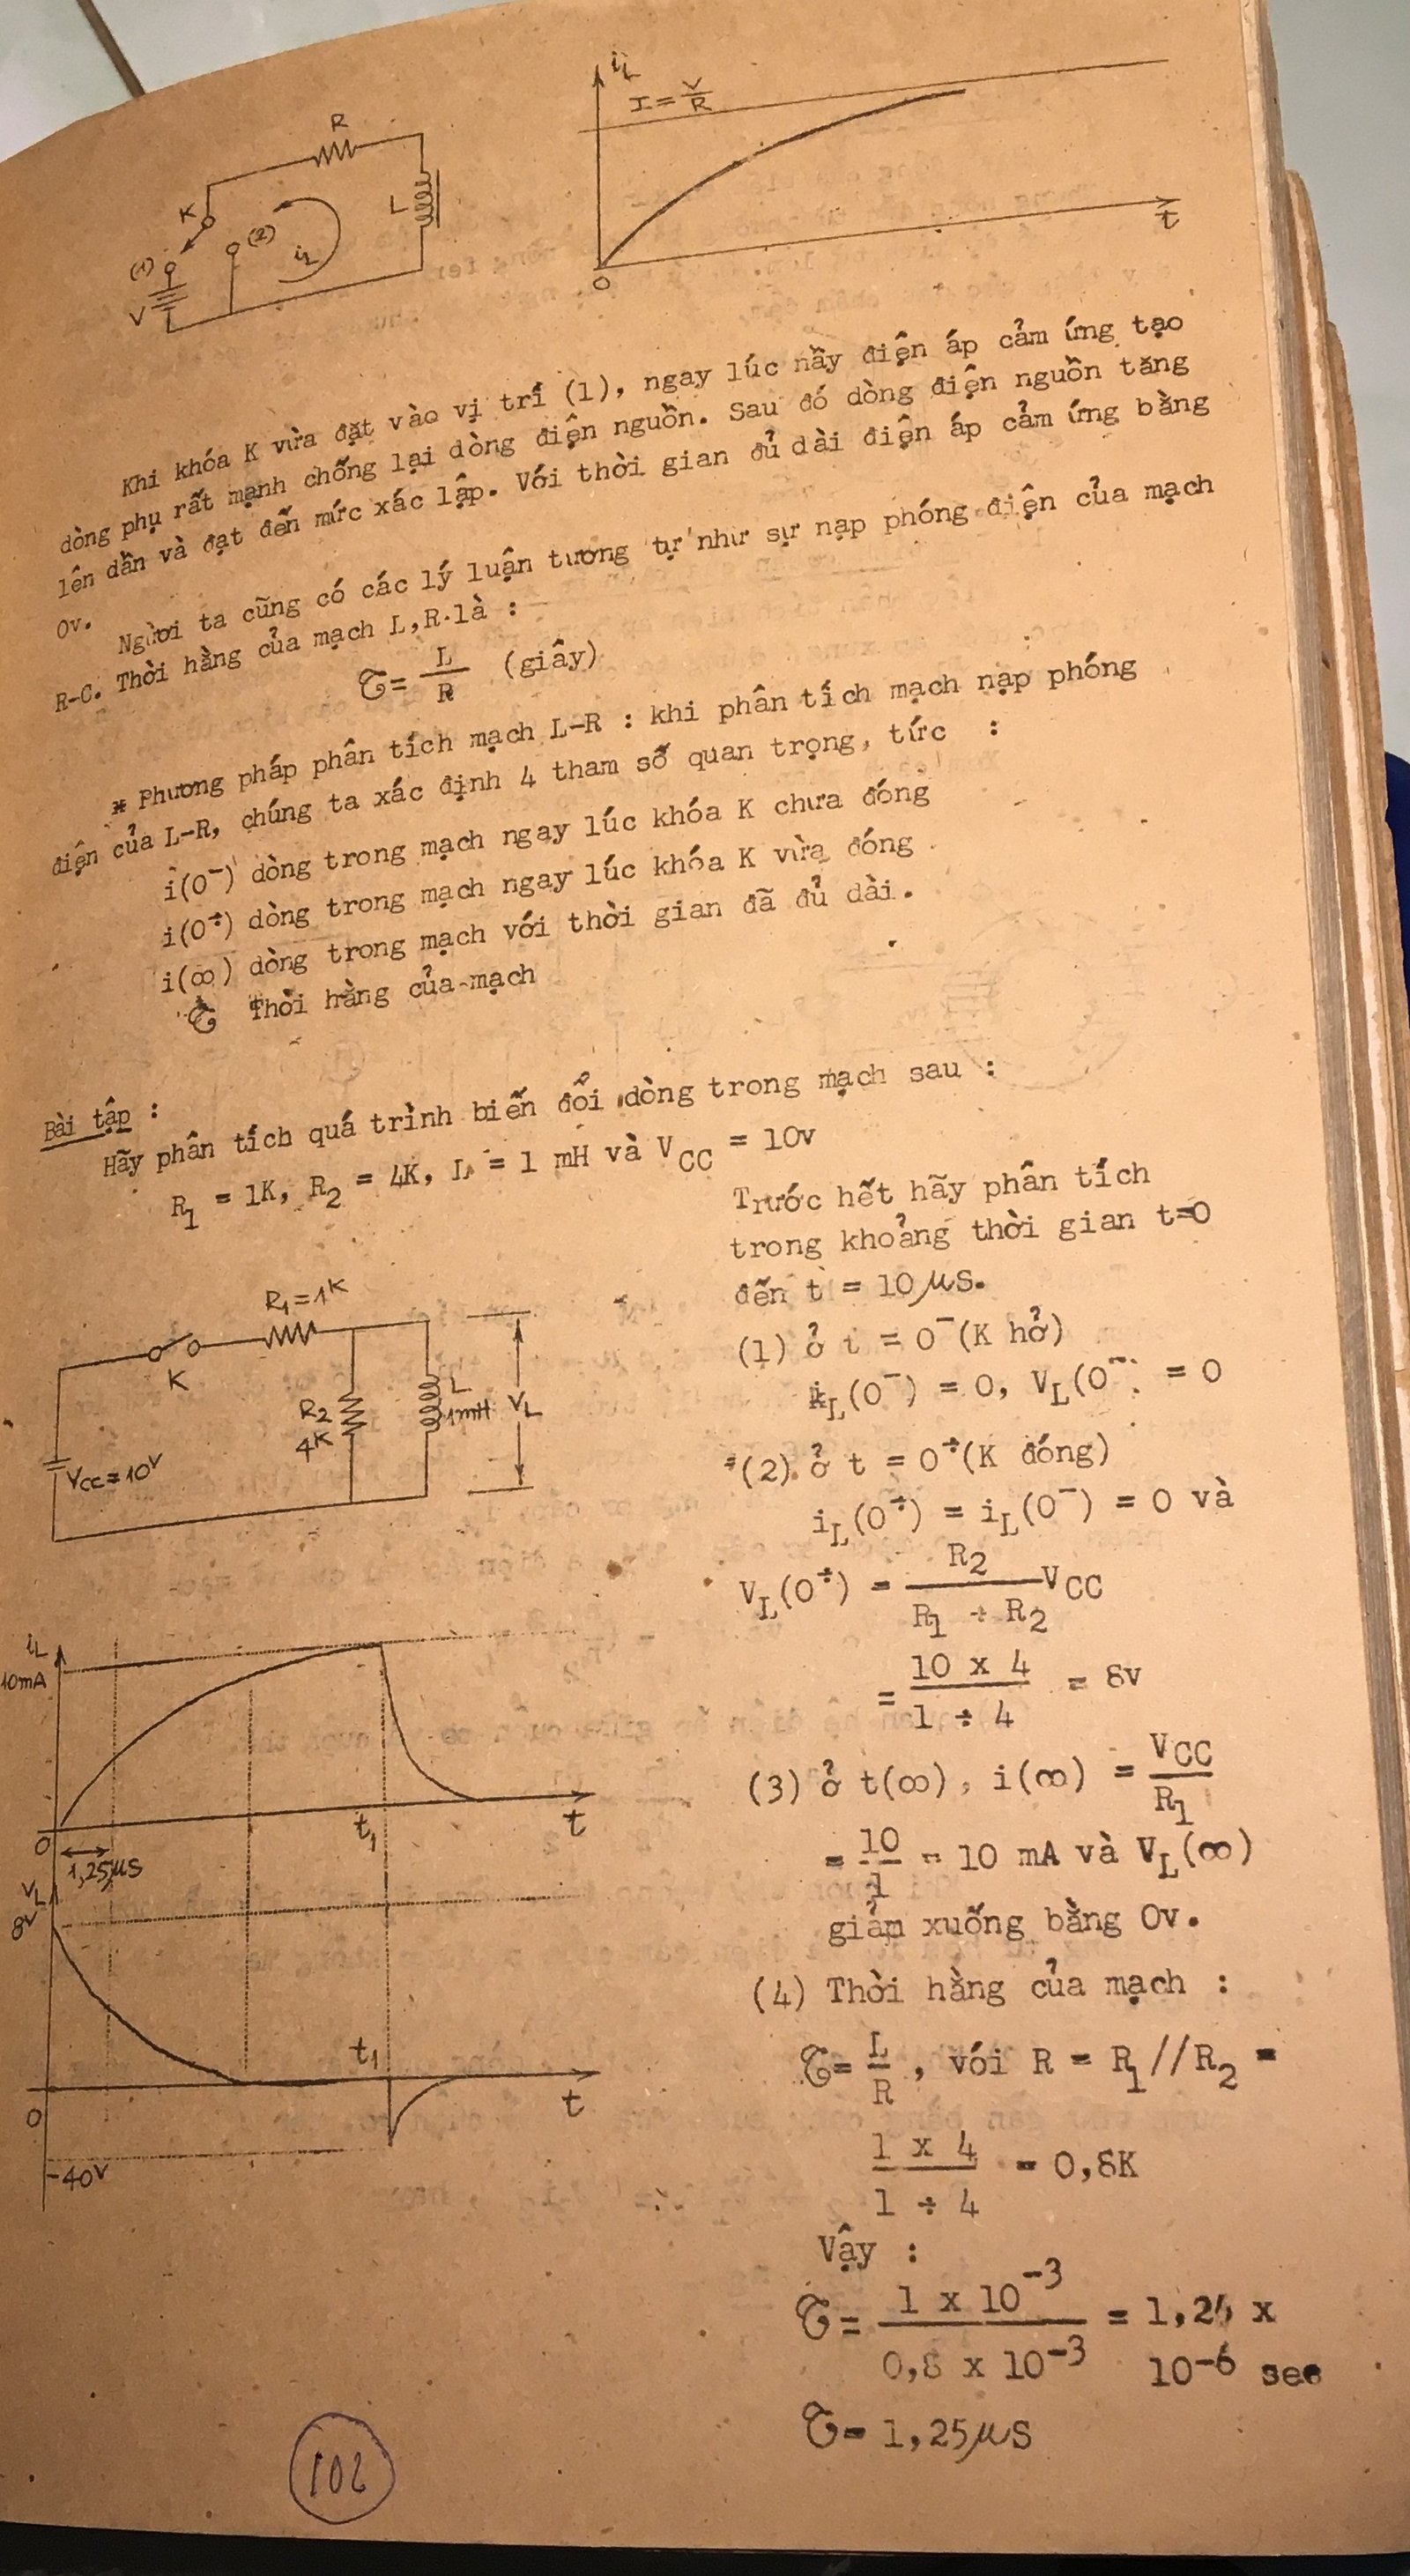 R
K
(1)
(2)
V
L
iL
iL
I = V/R
t
0
Khi khóa K vừa đặt vào vị trí (1), ngay lúc nầy điện áp cảm ứng tạo
dòng phụ rất mạnh chống lại dòng điện nguồn. Sau đó dòng điện nguồn tăng
lên dần và đạt đến mức xác lập. Với thời gian đủ dài điện áp cảm ứng bằng
0v.
Người ta cũng có các lý luận tương tự như sự nạp phóng điện của mạch
R-C. Thời hằng của mạch L,R là :
τ = L/R (giây)
* Phương pháp phân tích mạch L-R : khi phân tích mạch nạp phóng
điện của L-R, chúng ta xác định 4 tham số quan trọng, tức :
i(0⁻) dòng trong mạch ngay lúc khóa K chưa đóng
i(0⁺) dòng trong mạch ngay lúc khóa K vừa đóng
i(∞) dòng trong mạch với thời gian đã đủ dài.
τ Thời hằng của mạch
Bài tập :
Hãy phân tích quá trình biến đổi dòng trong mạch sau :
R1 = 1K, R2 = 4K, L = 1 mH và VCC = 10v
R1=1K
K
R2
4K
L
1mH
VL
VCC=10V
iL
10mA
0
1,25μS
t1
t
VL
8V
t1
0
t
-40V
Trước hết hãy phân tích
trong khoảng thời gian t=0
đến t = 10 μS.
(1) ở t = 0⁻(K hở)
iL(0⁻) = 0, VL(0⁻) = 0
(2) ở t = 0⁺(K đóng)
iL(0⁺) = iL(0⁻) = 0 và
VL(0⁺) = R2/(R1 + R2) VCC
= (10 x 4)/(1 + 4) = 8v
(3) ở t(∞), i(∞) = VCC/R1
= 10/1 = 10 mA và VL(∞)
giảm xuống bằng 0v.
(4) Thời hằng của mạch :
τ = L/R , với R = R1//R2 =
(1 x 4)/(1 + 4) = 0,8K
Vậy :
τ = (1 x 10⁻³)/(0,8 x 10⁻³) = 1,25 x
10⁻⁶ sec
τ = 1,25μS
102